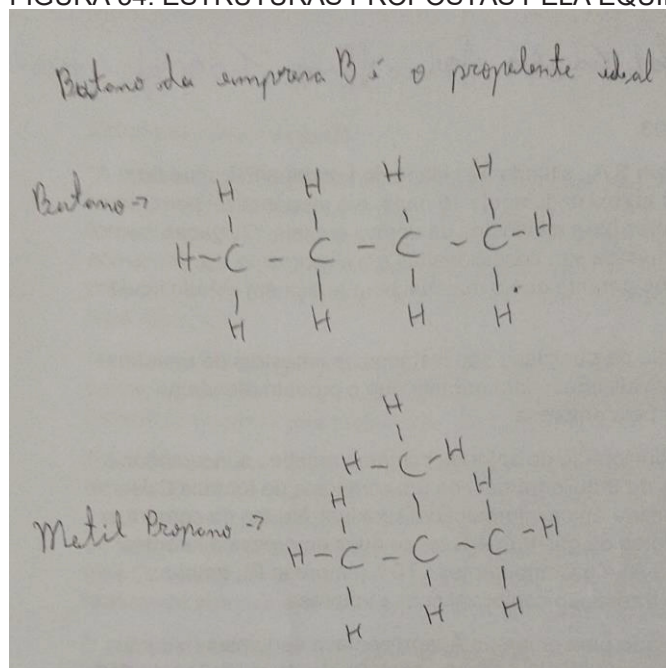 FIGURA 04: ESTRUTURAS PROPOSTAS PELA EQUIP
Butano da empresa B é o propelente ideal
Butano →
H H H H
H - C - C - C - C - H
H H H H
H
H - C - H
H H
Metil Propano →
H - C - C - C - H
H H H